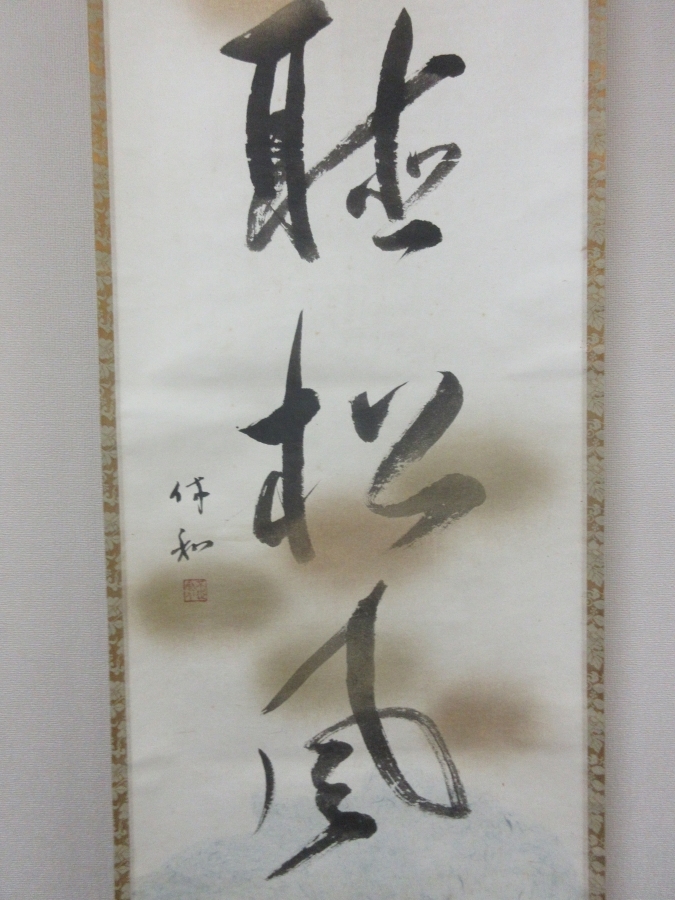 聴松風
休和